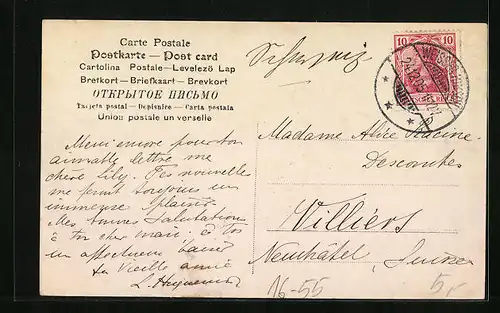 Carte Postale
Postkarte — Post card
Cartolina Postale — Levelező Lap
Bretkort — Briefkaart — Brevkort
ОТКРЫТОЕ ПИСЬМО
Tarjeta postal — Dopisnice — Carta postala
Union postale universelle
10 10
Merci encore pour ton
aimable lettre me
chère Lily. Tes nouvelles
me font toujours un
immense plaisir.
Mes bonnes Salutations
à ton cher mari. à toi
un affectueux baiser
ta vieille amie
L.
Madame Racine-
Descombes
Villiers
Neuchâtel, Suisse
16-55
5,-